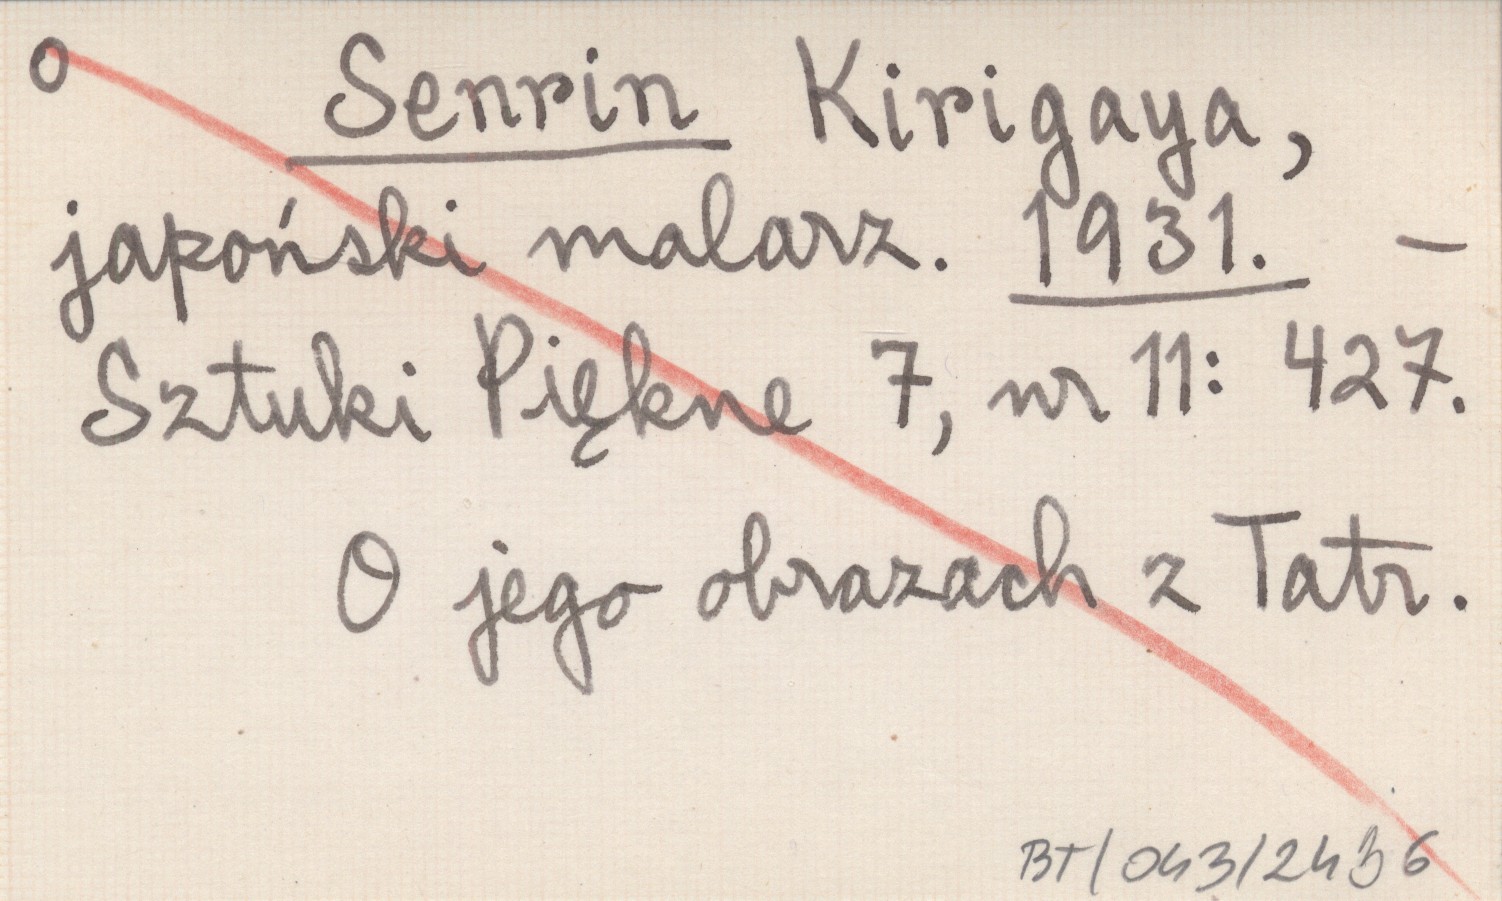 o Senrin Kirigaya,
japoński malarz. 1931. –
Sztuki Piękne 7, nr 11: 427.
O jego obrazach z Tatr.
BT/043/2436